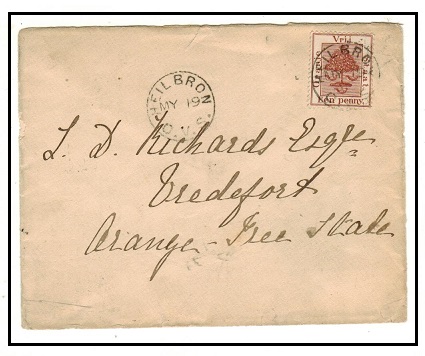 Vrij
Een penny.
HEILBRON
HEILBRON
MY 19
O.V.S
L. D. Richards Esqre
Vredefort
Orange-Free State